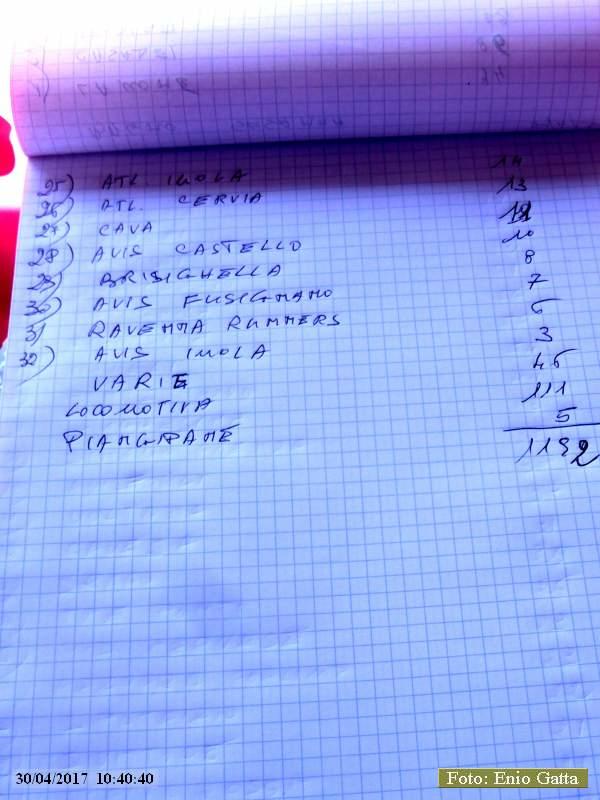 25) ATL. IMOLA 14
26) ATL. CERVIA 13
27) CAVA
28) AVIS CASTELLO 10
29) BRISIGHELLA 8
30) AVIS FUSIGNANO 7
31) RAVENNA RUNNERS 6
32) AVIS IMOLA 3
VARIE 45
LOCOMOTIVA 111
PIANGIPANE 5
1192
30/04/2017 10:40:40
Foto: Enio Gatta